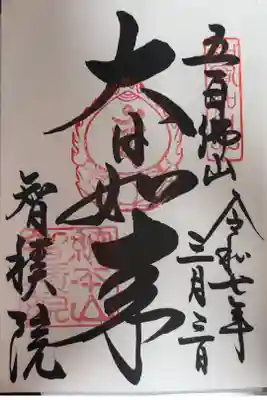 五百佛山
令和七年
三月三日
大日如来
智積院